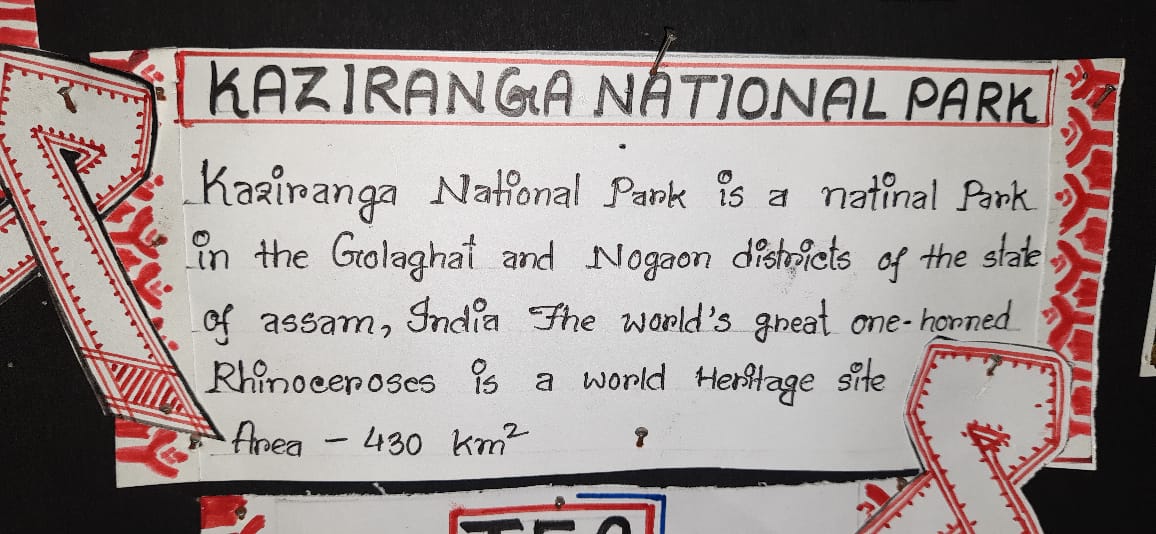 KAZIRANGA NATIONAL PARK
Kaziranga National Park is a natinal Park
in the Golaghat and Nogaon districts of the state
of assam, India The world's great one-horned
Rhinoceroses is a world Heritage site
Area - 430 km²
TEA